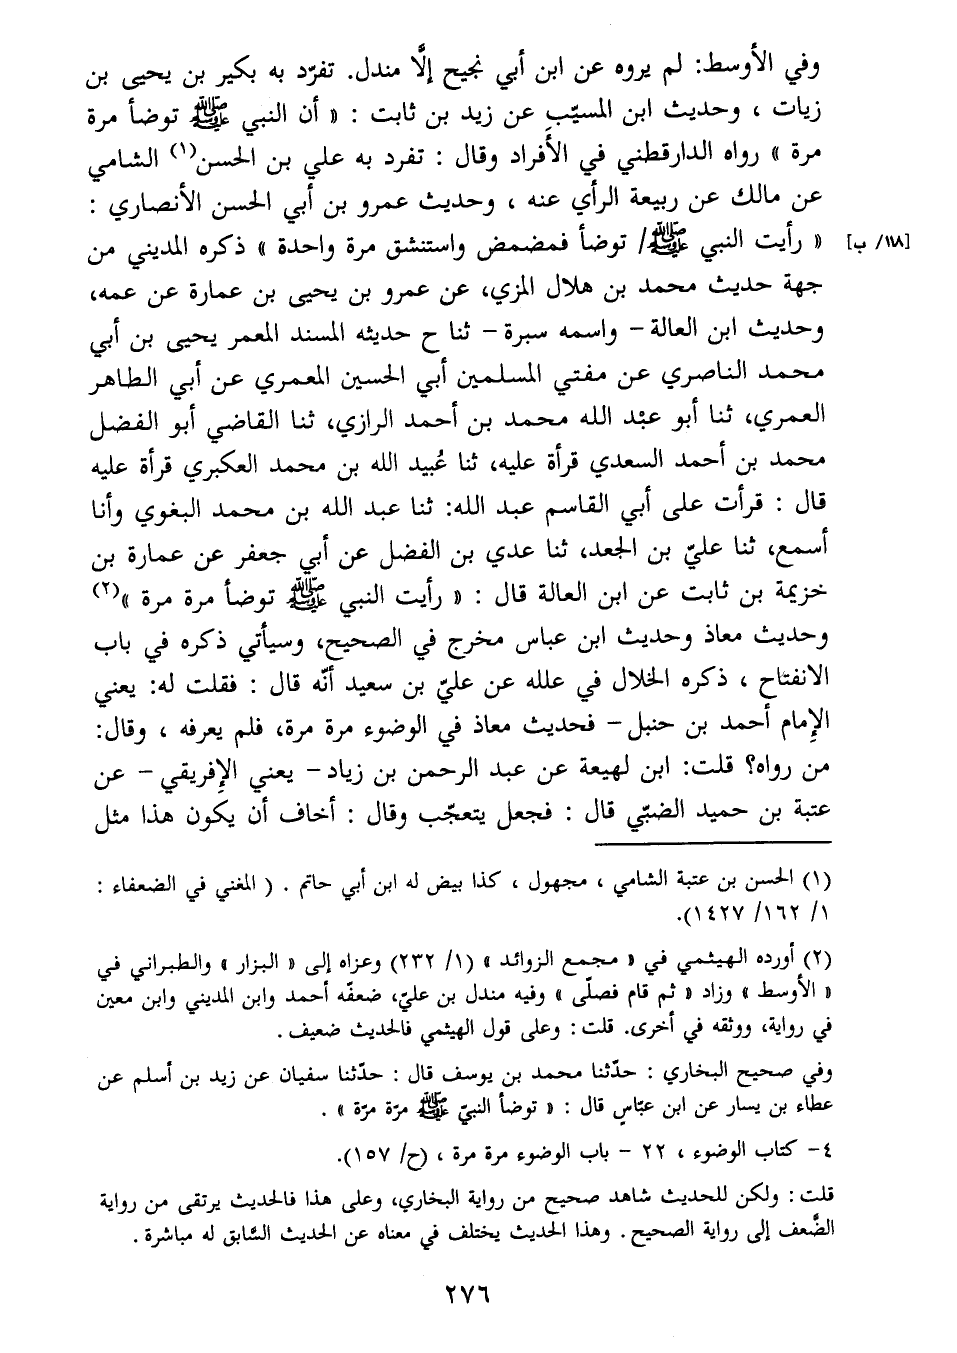 وفي الأوسط: لم يروه عن ابن أبي نجيح إلَّا مندل. تفرّد به بكير بن يحيى بن
زيات ، وحديث ابن المسيّبِ عن زيد بن ثابت : « أن النبي ﷺ توضأ مرة
مرة » رواه الدارقطني في الأفراد وقال : تفرد به علي بن الحسن(١) الشامي
عن مالك عن ربيعة الرأي عنه ، وحديث عمرو بن أبي الحسن الأنصاري :
« رأيت النبي ﷺ/ توضأ فمضمض واستنشق مرة واحدة » ذكره المديني من [١١٨/ ب]
جهة حديث محمد بن هلال المزي، عن عمرو بن يحيى بن عمارة عن عمه،
وحديث ابن العالة – واسمه سبرة – ثنا ح حديثه المسند المعمر يحيى بن أبي
محمد الناصري عن مفتي المسلمين أبي الحسين المعمري عن أبي الطاهر
العمري، ثنا أبو عبْد الله محمد بن أحمد الرازي، ثنا القاضي أبو الفضل
محمد بن أحمد السعدي قرأة عليه، ثنا عُبيد الله بن محمد العكبري قرأة عليه
قال : قرأت على أبي القاسم عبد الله: ثنا عبد الله بن محمد البغوي وأنا
أسمع، ثنا عليّ بن الجعد، ثنا عدي بن الفضل عن أبي جعفر عن عمارة بن
خزيمة بن ثابت عن ابن العالة قال : « رأيت النبي ﷺ توضأ مرة مرة »(٢)
وحديث معاذ وحديث ابن عباس مخرج في الصحيح، وسيأتي ذكره في باب
الانفتاح ، ذكره الخلال في علله عن عليّ بن سعيد أنّه قال : فقلت له: يعني
الإِمام أحمد بن حنبل – فحديث معاذ في الوضوء مرة مرة، فلم يعرفه ، وقال:
من رواه؟ قلت: ابن لهيعة عن عبد الرحمن بن زياد – يعني الإِفريقي – عن
عتبة بن حميد الضبّي قال : فجعل يتعجّب وقال : أخاف أن يكون هذا مثل
(١) الحسن بن عتبة الشامي ، مجهول ، كذا بيض له ابن أبي حاتم . ( المغني في الضعفاء :
١/ ١٦٢/ ١٤٢٧).
(٢) أورده الهيثمي في « مجمع الزوائد » (١/ ٢٣٢) وعزاه إلى « البزار » والطبراني في
« الأوسط » وزاد « ثم قام فصلّى » وفيه مندل بن عليّ، ضعفّه أحمد وابن المديني وابن معين
في رواية، ووثقه في أخرى. قلت : وعلى قول الهيثمي فالحديث ضعيف .
وفي صحيح البخاري : حدّثنا محمد بن يوسف قال : حدّثنا سفيان عن زيد بن أسلم عن
عطاء بن يسار عن ابن عبّاسٍ قال : « توضأ النبيّ ﷺ مرّة مرّة » .
٤- كتاب الوضوء ، ٢٢ – باب الوضوء مرة مرة ، (ح/ ١٥٧).
قلت : ولكن للحديث شاهد صحيح من رواية البخاري، وعلى هذا فالحديث يرتقى من رواية
الضَّعف إلى رواية الصحيح . وهذا الحديث يختلف في معناه عن الحديث السَّابق له مباشرة .
٢٧٦